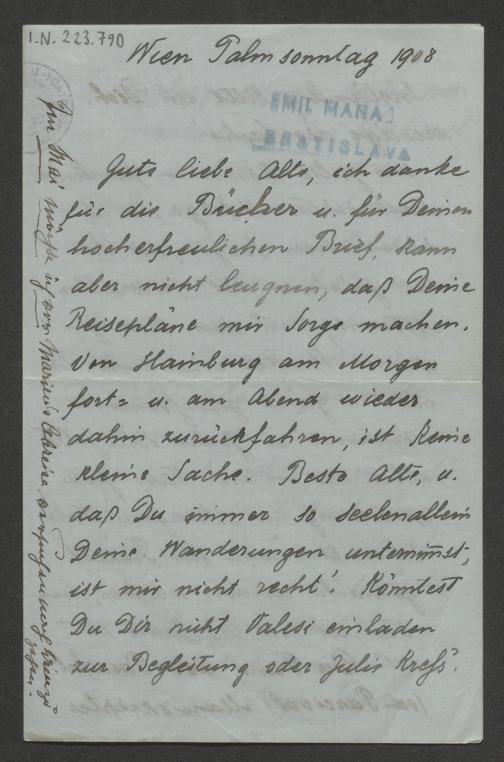 I.N. 223.790
Wien Palmsonntag 1908
EMIL MAŇA
BRATISLAVA
Gute liebe Alte, ich danke
für die Bücher u. für Deinen
hocherfreulichen Brief, kann
aber nicht leugnen, daß Deine
Reisepläne mir Sorge machen.
Von Hainburg am Morgen
fort= u. am Abend wieder
dahin zurückfahren, ist keine
kleine Sache. Beste Alte, u.
daß Du immer so seelenallein
Deine Wanderungen unternimst,
ist mir nicht recht! Könntest
Du Dir nicht Valesi einladen
zur Begleitung oder Julie Kreß?
Im Mai möchte ich vor Mariens Abreise